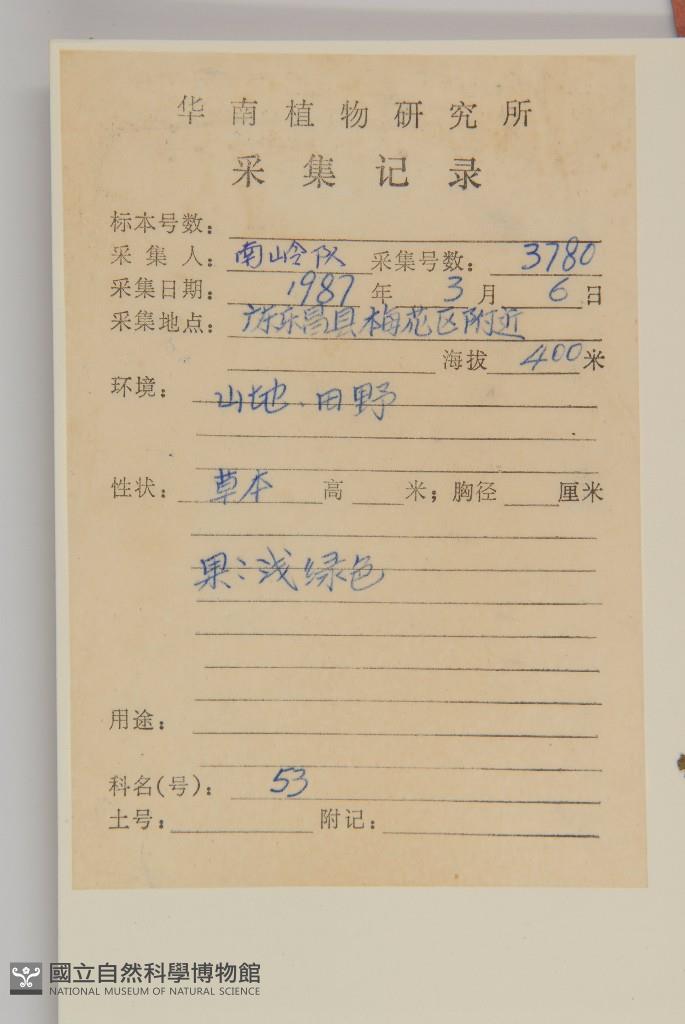 华南植物研究所
采集记录
标本号数：
采集人：南岭队 采集号数：3780
采集日期：1987年3月6日
采集地点：广东乐昌县梅花区附近
海拔400米
环境：山地、田野
性状：草本 高 米；胸径 厘米
果：浅绿色
用途：
科名(号)：53
土号： 附记：
國立自然科學博物館
NATIONAL MUSEUM OF NATURAL SCIENCE